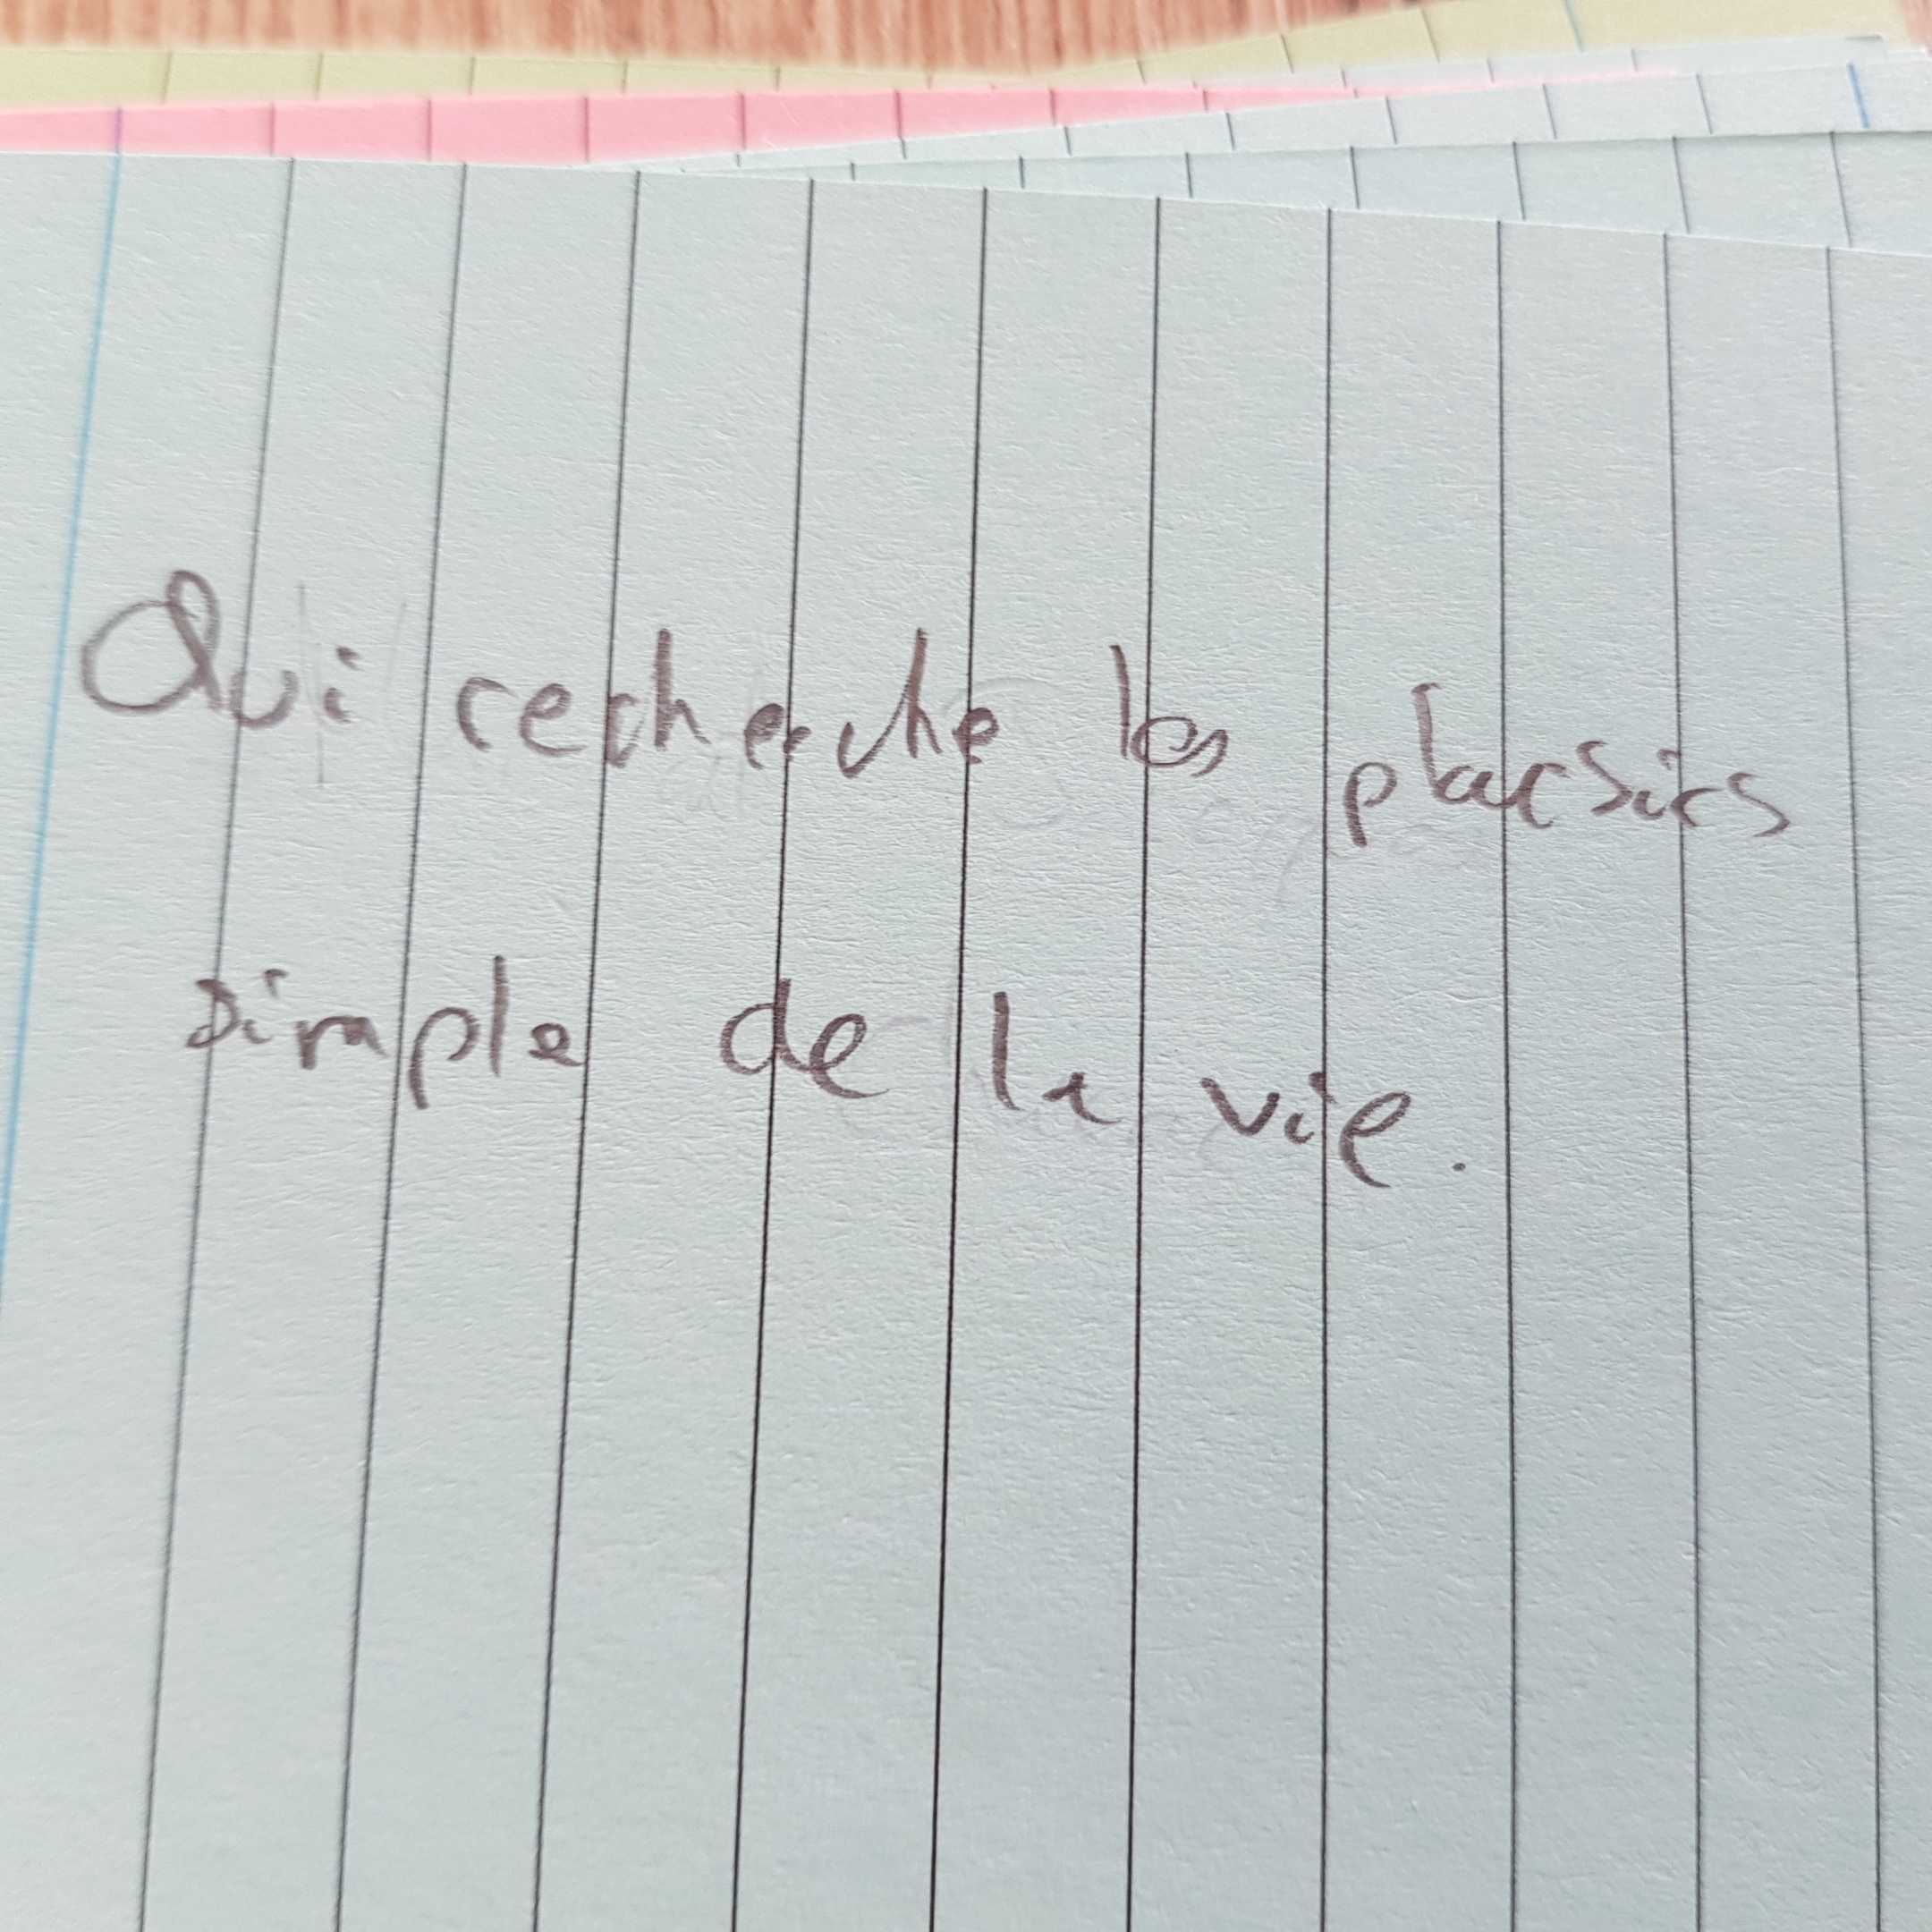 Qui recherche les plaisirs
simple de la vie.